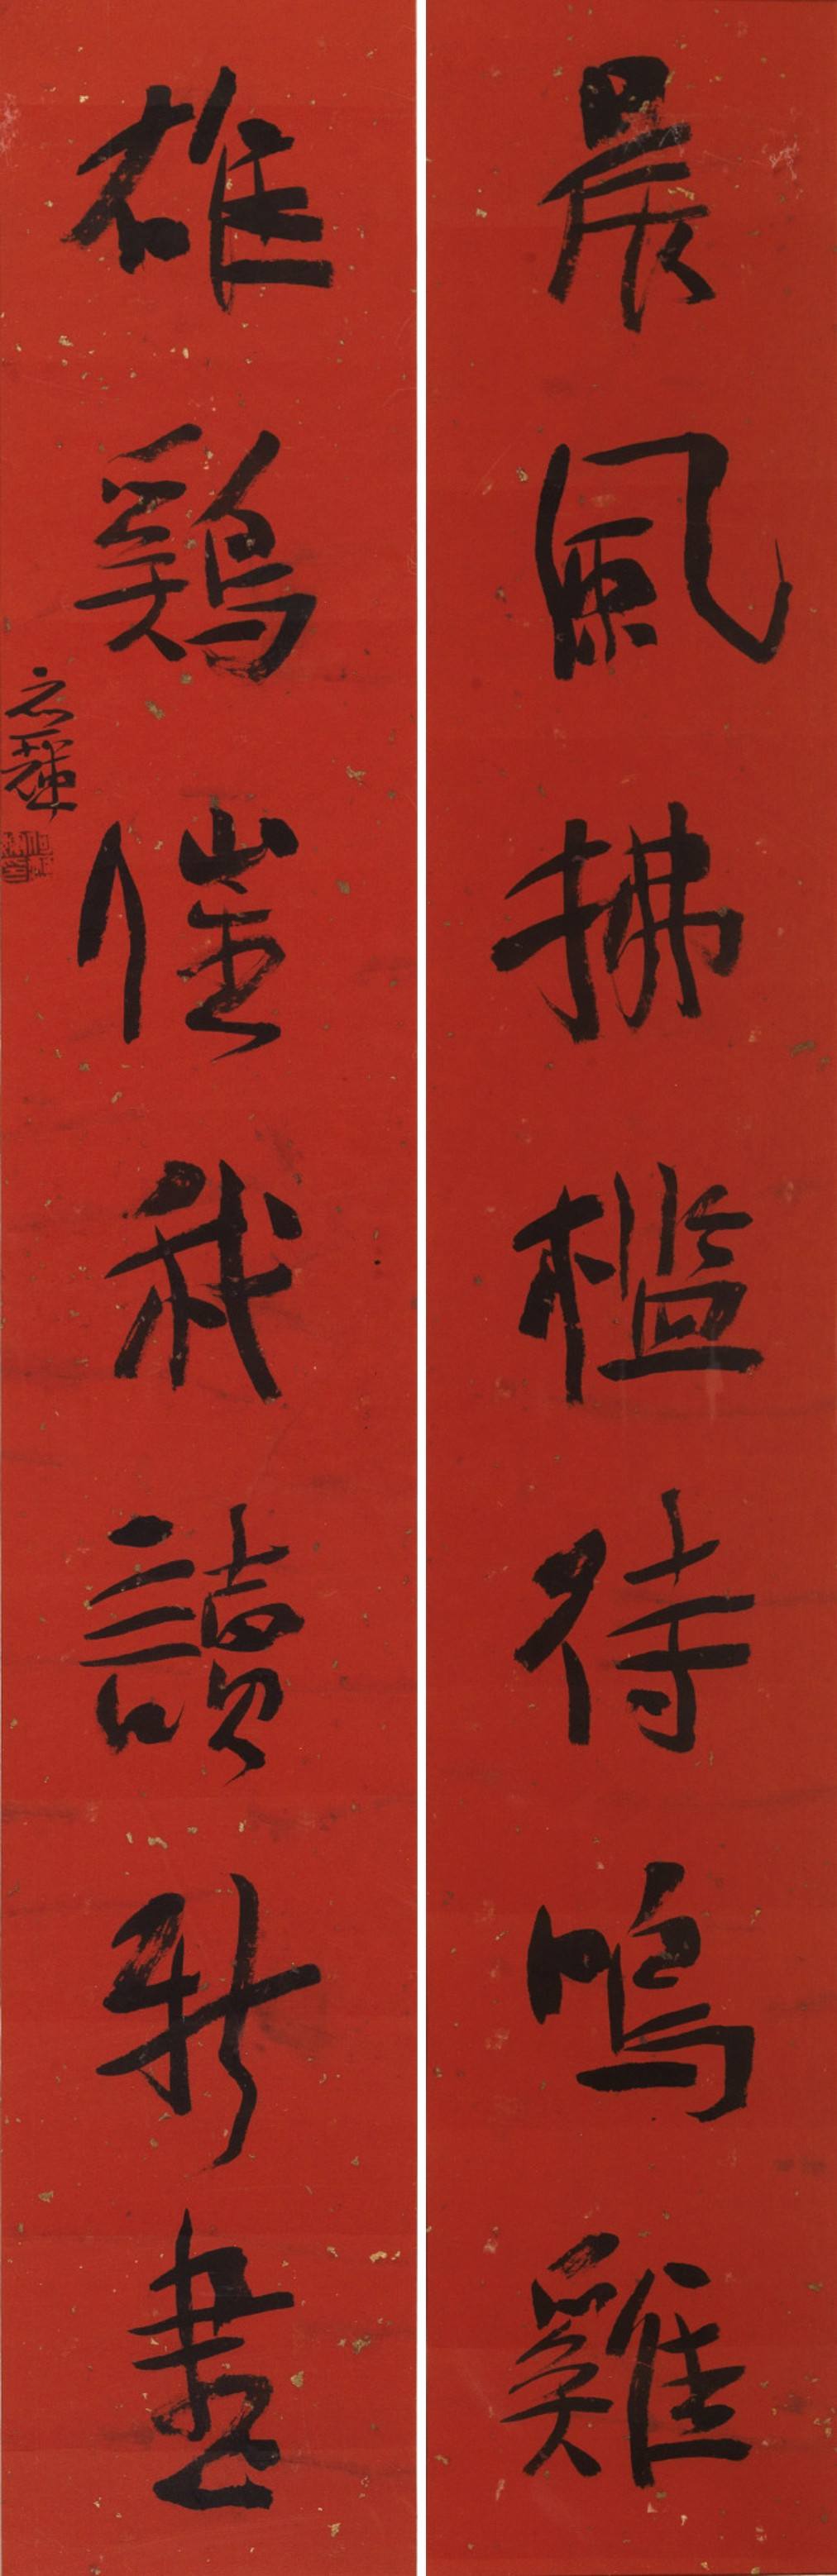 晨風拂檻待鳴雞
雄鷄催我讀新書